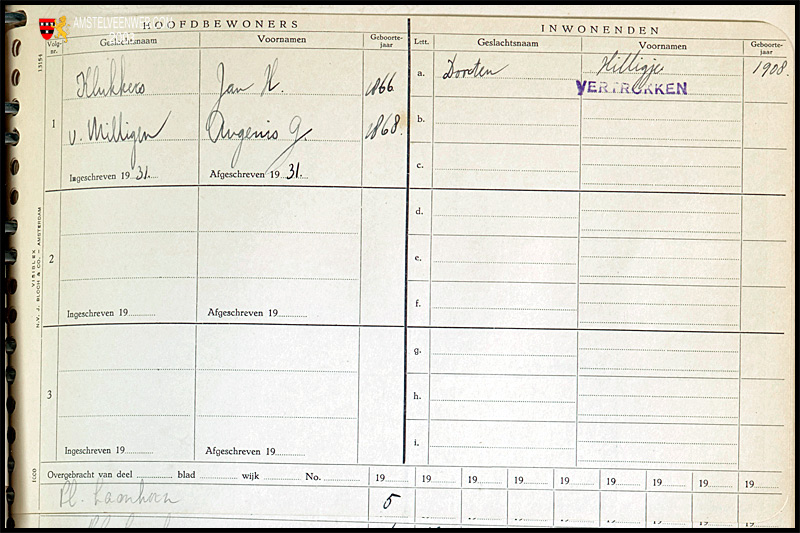 AMSTELVEENWEB.COM
HOOFDBEWONERS
Volg-nr.
Geslachtsnaam
Voornamen
Geboorte-jaar
1
Klukkers
Jan H.
1866
v. Milligen
Angenis G.
1868
Ingeschreven 19 31.
Afgeschreven 19 31.
2
Ingeschreven 19
Afgeschreven 19
3
Ingeschreven 19
Afgeschreven 19
INWONENDEN
Lett.
Geslachtsnaam
Voornamen
Geboorte-jaar
a.
Dorsten
Hilligje
1908.
VERTROKKEN
b.
c.
d.
e.
f.
g.
h.
i.
Overgebracht van deel blad wijk No. 19 19 19 19 19 19 19 19 19 19
Pl. Laanhoen
5
13154
VISIBLEX
N.V. J. BLOCH & CO. – AMSTERDAM